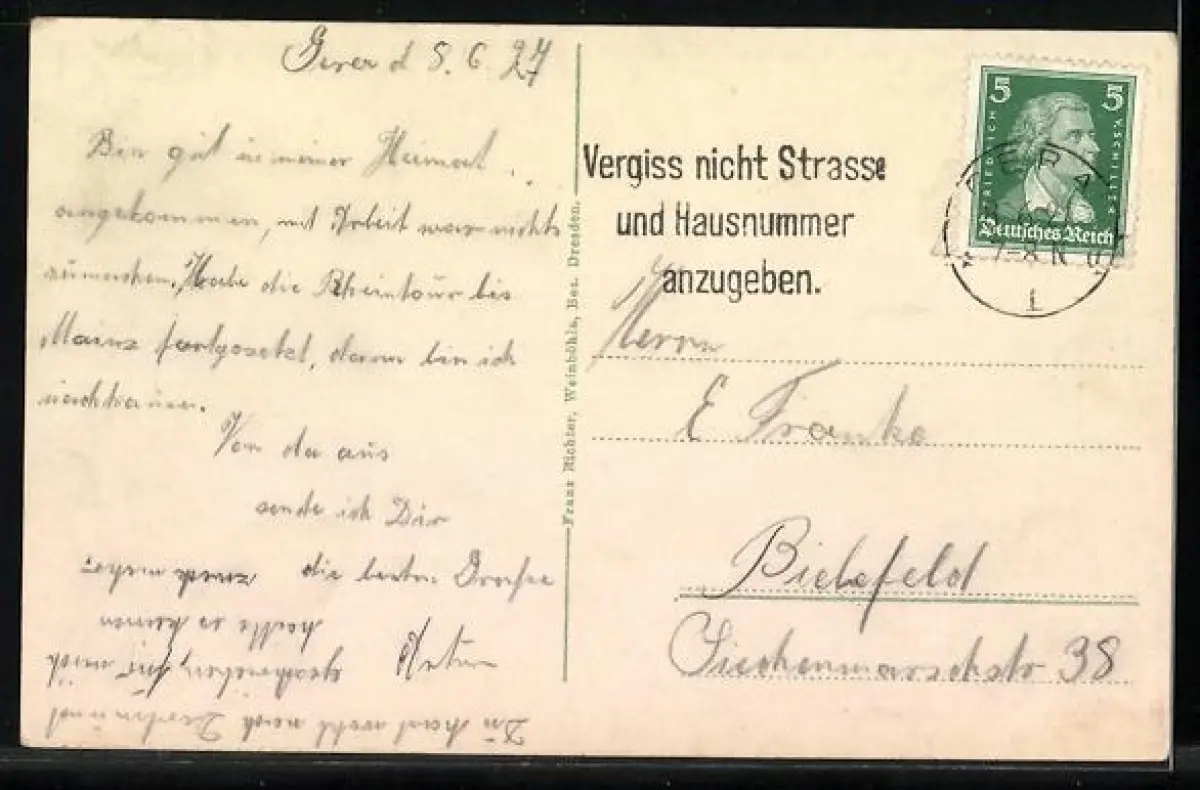 Gera d 5. 6. 27
27
Bin gut in meiner Heimat
angekommen, mit Arbeit war nichts
zumachen. Habe die Rheintour bis
Mainz fortgesetzt, dann bin ich
nachhause.
Von da aus
sende ich Dir
die besten Grüße
Artur
Du hast wohl nach Dortmund
geschrieben, für mich
hoffe zu
Franz Richter, Weinböhla, Bez. Dresden.
Vergiss nicht Strasse
und Hausnummer
anzugeben.
5 5
FRIEDRICH V. SCHILLER
Deutsches Reich
GERA
7-8 N
1
Herrn
E Franke
Bielefeld
Siechenmarschstr 38